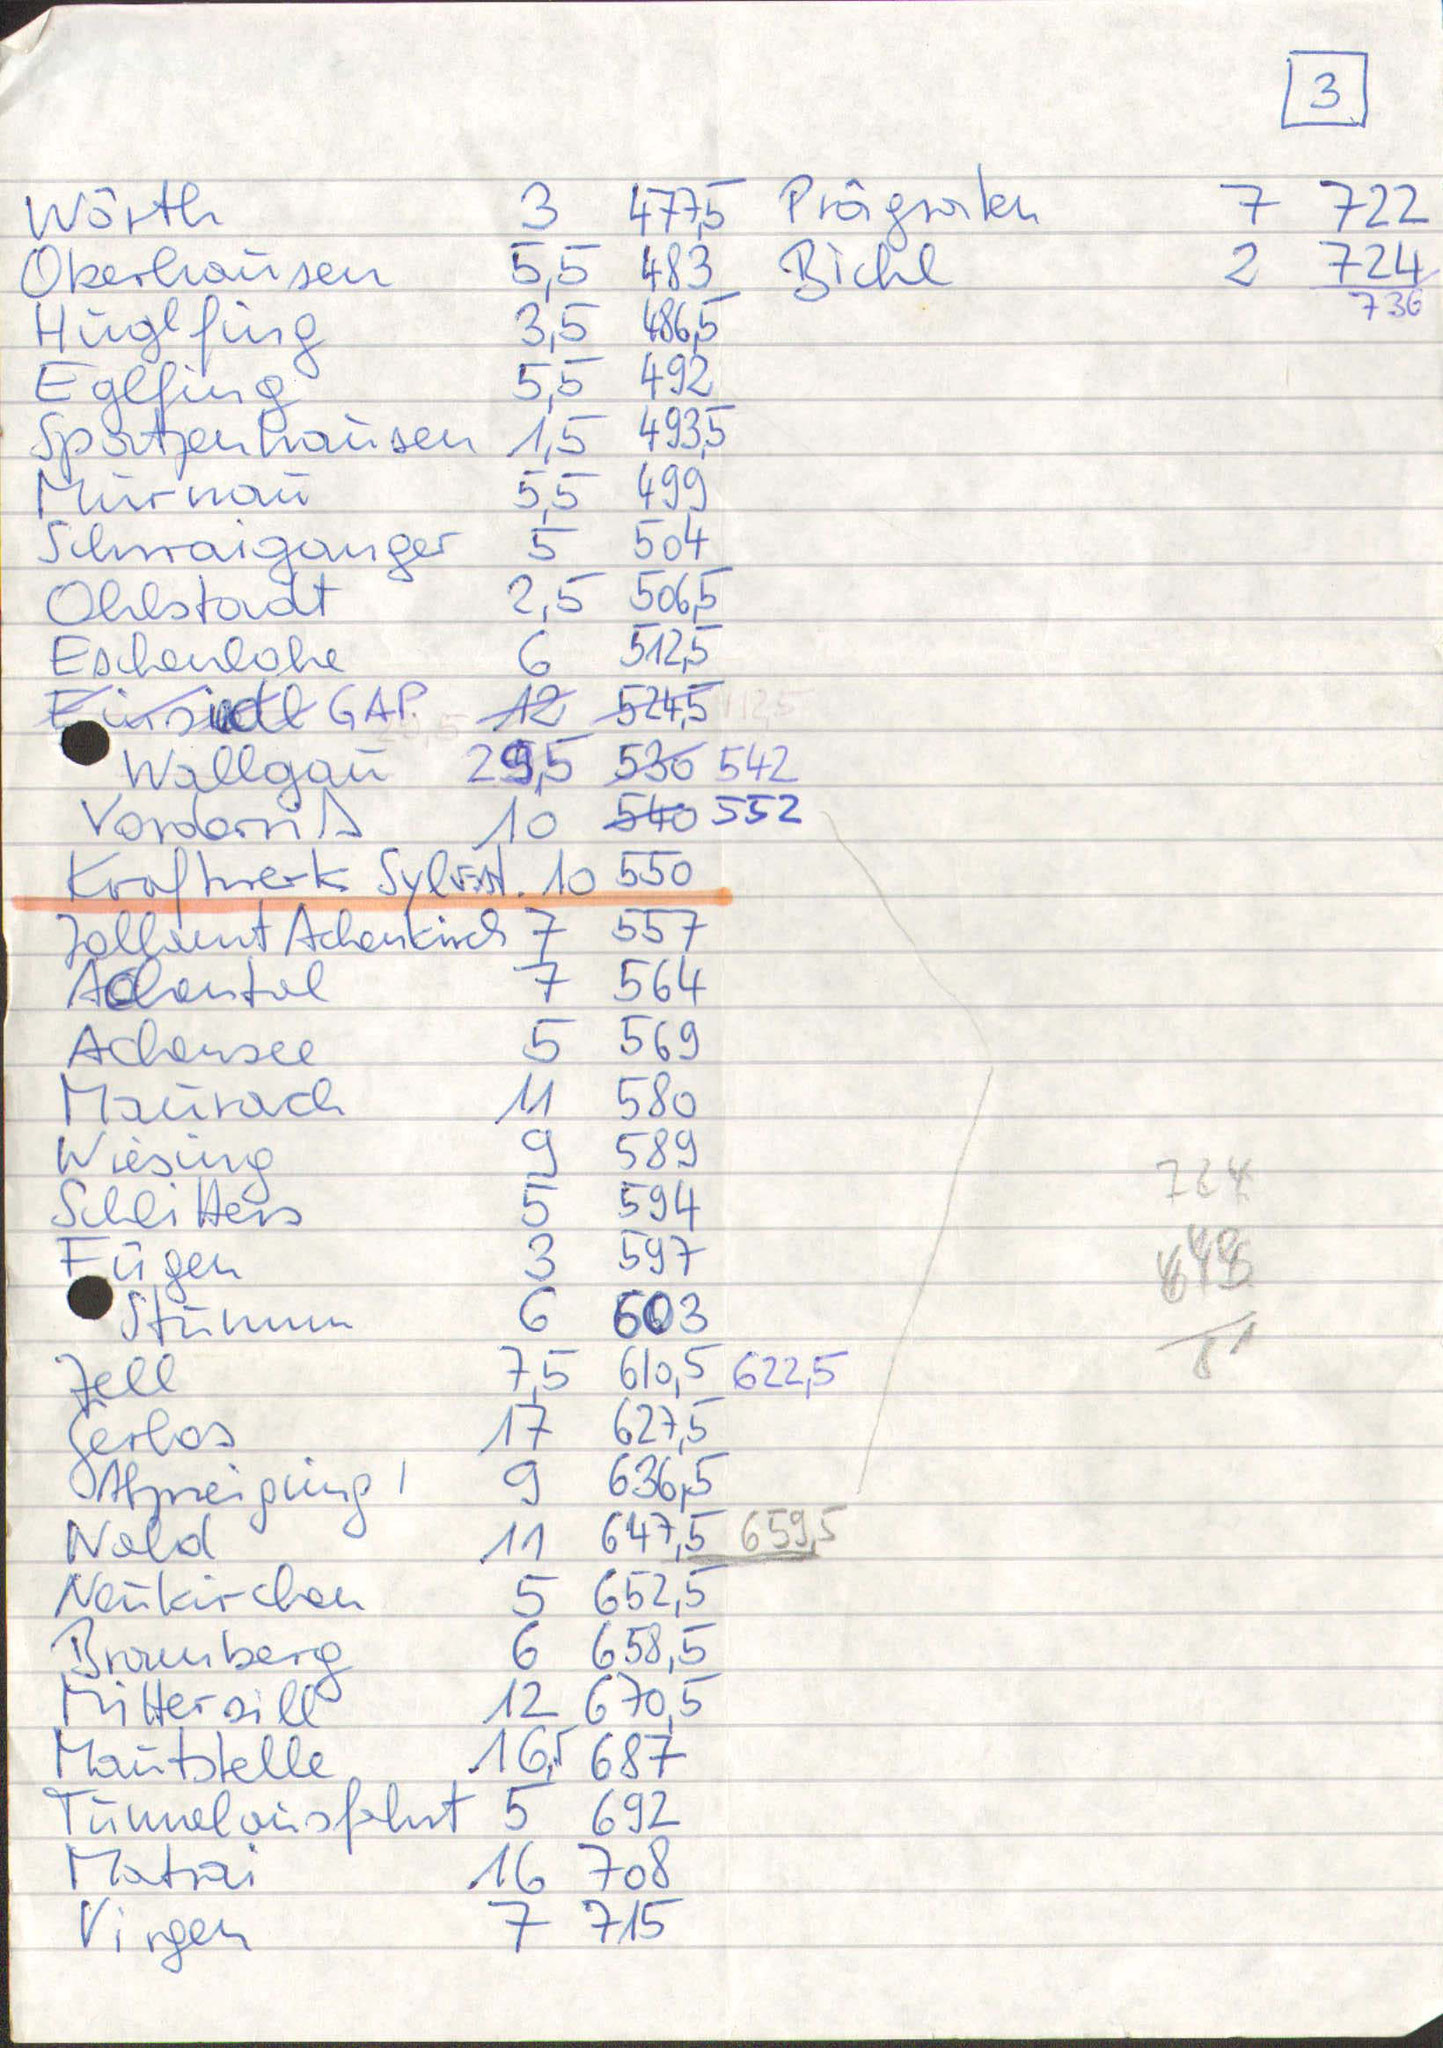 3
Wörth 3 477,5
Oberhausen 5,5 483
Huglfing 3,5 486,5
Eglfing 5,5 492
Spatzenhausen 1,5 493,5
Murnau 5,5 499
Schwaiganger 5 504
Ohlstadt 2,5 506,5
Eschenlohe 6 512,5
Einsiedl GAP 12 524,5
Wallgau 29,5 536 542
Vorderriß 10 540 552
Kraftwerk Sylvst. 10 550
Zollamt Achenkirch 7 557
Achental 7 564
Achensee 5 569
Maurach 11 580
Wiesing 9 589
Schlitters 5 594
Fügen 3 597
Stumm 6 603
Zell 7,5 610,5 622,5
Gerlos 17 627,5
Abzweigung 9 636,5
Wald 11 647,5 659,5
Neukirchen 5 652,5
Bramberg 6 658,5
Mittersill 12 670,5
Mautstelle 16,5 687
Tunnelausfahrt 5 692
Matrei 16 708
Virgen 7 715
Prägraten 7 722
Bichl 2 724
736
724
81